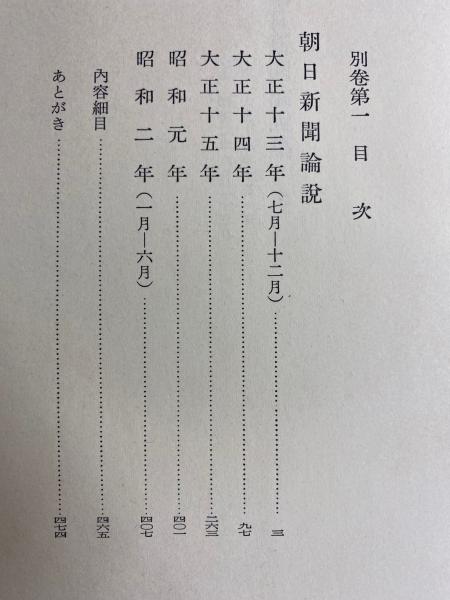 別卷第一 目 次
朝日新聞論説
大正十三年(七月―十二月)……………………三
大正十四年……………………九七
大正十五年……………………二六三
昭和元年……………………四〇一
昭和二年(一月―六月)……………………四〇七
內容細目……………………四六五
あとがき……………………四七四